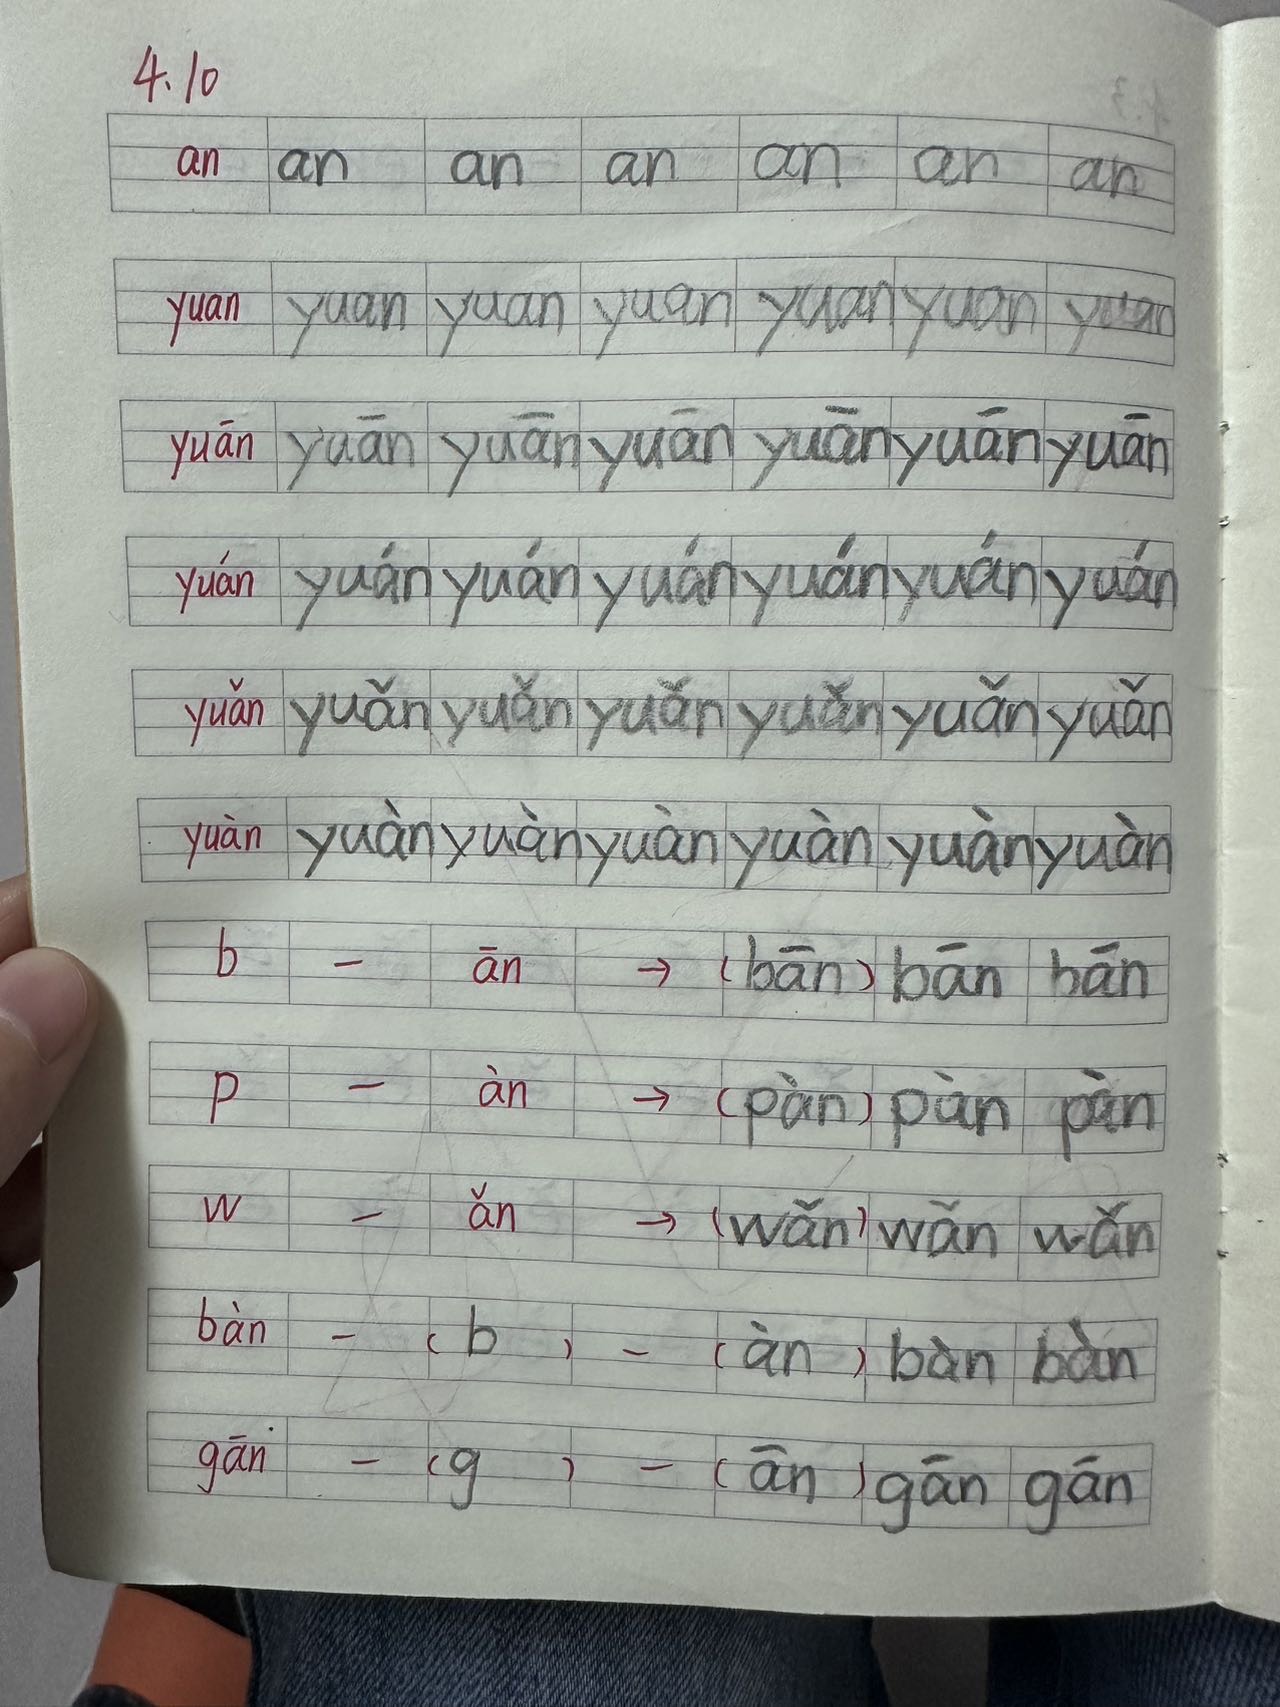 4.10
an an an an an an an
yuan yuan yuan yuan yuan yuan yuan
yuān yuān yuān yuān yuān yuān yuān
yuán yuán yuán yuán yuán yuán yuán
yuǎn yuǎn yuǎn yuǎn yuǎn yuǎn yuǎn
yuàn yuàn yuàn yuàn yuàn yuàn yuàn
b - ān → (bān) bān bān
p - àn → (pàn) pàn pàn
w - ǎn → (wǎn) wǎn wǎn
bàn - (b) - (àn) bàn bàn
gān - (g) - (ān) gān gān